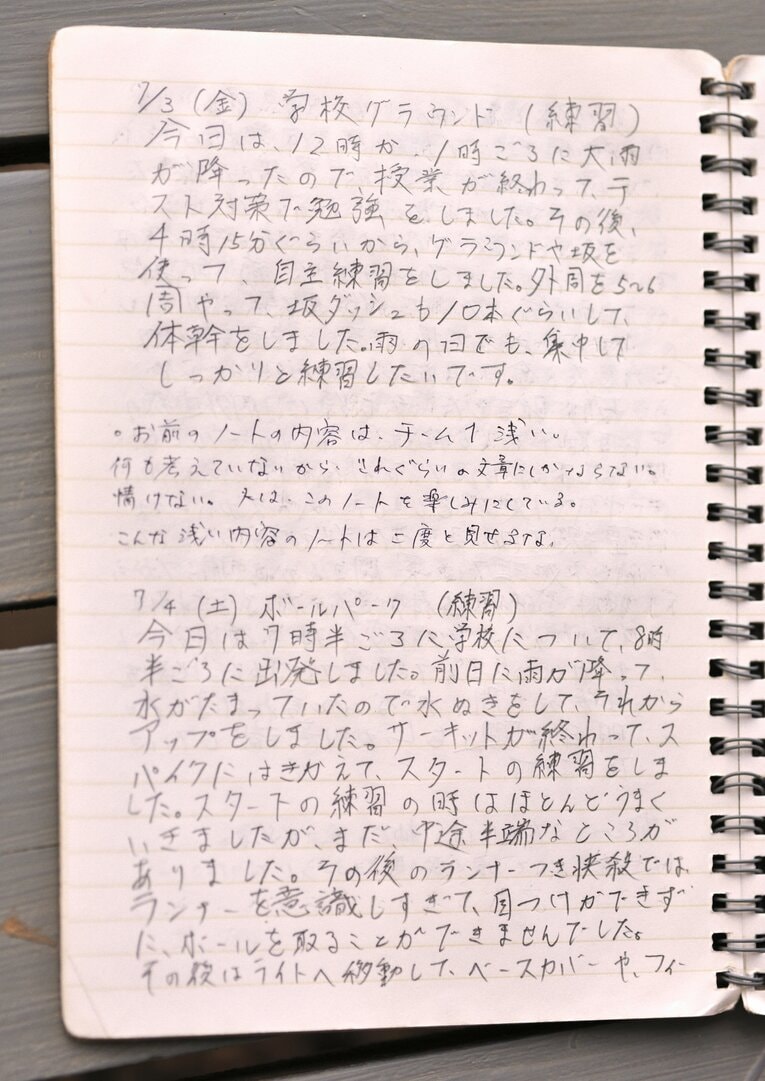 7/3 (金) 学校グラウンド (練習)
今日は、12時か、1時ごろに大雨
が降ったので、授業が終わって、テ
スト対策で勉強をしました。その後、
4時15分ぐらいから、グラウンドや坂を
使って、自主練習をしました。外周を5~6
周やって、坂ダッシュも10本ぐらいして、
体幹をしました。雨の日でも、集中して
しっかりと練習したいです。
。お前のノートの内容は、チーム1浅い。
何も考えていないから、これぐらいの文章にしかならない。
情けない。 このノートを楽しみにしている。
こんな浅い内容のノートは二度と見せるな。
7/4 (土) ボールパーク (練習)
今日は7時半ごろに学校について、8時
半ごろに出発しました。前日に雨が降って、
水がたまっていたので水ぬきをして、それから
アップをしました。サーキットが終わって、ス
パイクにはきかえて、スタートの練習をしま
した。スタートの練習の時はほとんどうまく
いきましたが、まだ、中途半端なところが
ありました。その後のランナーつき挟殺では、
ランナーを意識しすぎて、目つけができず
に、ボールを取ることができませんでした。
その後はライトへ移動して、ベースカバーや、フィー